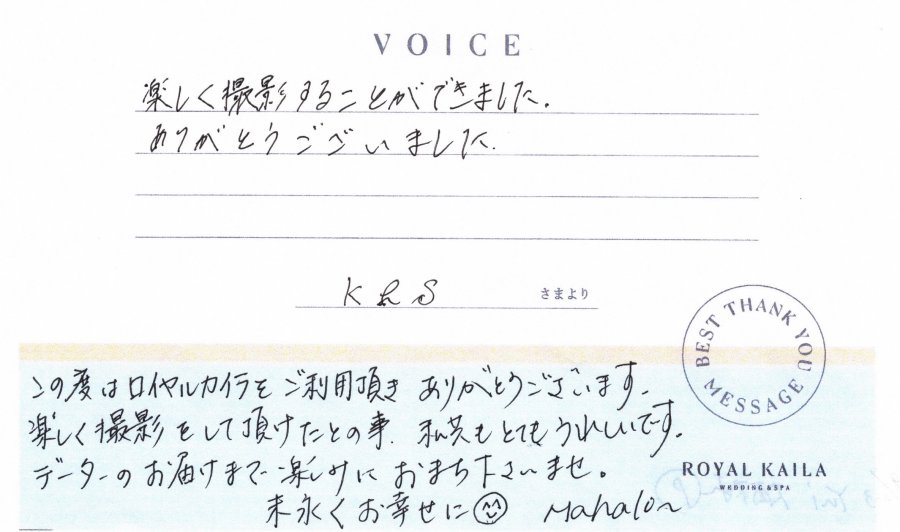 VOICE
楽しく撮影することができました。
ありがとうございました。
K & S さまより
BEST THANK YOU MESSAGE
この度はロイヤルカイラをご利用頂き ありがとうございます。
楽しく撮影をして頂けたとの事、私共もとてもうれしいです。
データーのお届けまで楽しみにおまち下さいませ。
末永くお幸せに
Mahalo~
ROYAL KAILA
WEDDING & SPA